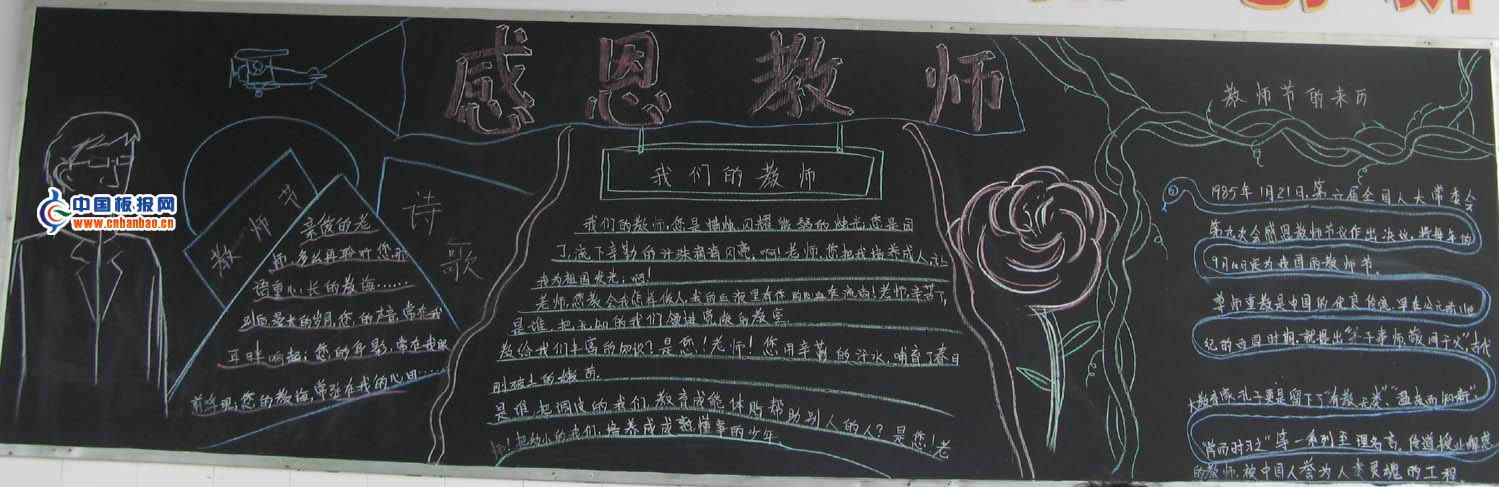 感恩教师
中国板报网
www.cnbanbao.cn
教师节
诗歌
亲爱的老
师,多么再聆听您那
语重心长的教诲……
别后最大的岁月,您的声音,常在我
耳畔响起;您的身影,常在我眼
前浮现;您的教诲,常驻在我的心田……
我们的教师
我们的教师,您是蜡烛,闪耀 的烛光,您是园
丁,流下辛勤的汗珠滴滴闪亮。啊!老师,您把我培养成人,让
我为祖国发光;啊!
老师,您教会我怎样做人,我的血液里有您的心血在流淌!老师,辛苦了,
是谁,把无知的我们领进宽敞的教室
教给我们丰富的知识?是您!老师!您用辛勤的汗水,哺育了春日
刚破土的嫩苗.
是谁,把调皮的我们,教育成能体贴帮助别人的人?是您!老
师!把幼小的我们,培养成成熟懂事的少年
教师节的来历
1985年1月21日,第六届全国人大常委会
第九次会感恩教师节议作出决议,将每年的
9月10定为我国的教师节.
尊师重教是中国的优良传统,早在公元前11世
纪的西周时期,就提出"弟子事师,敬同于父",古代
大教育家孔子更是留下了"有教无类""温故而知新"、
"学而时习之"等一系列至理名言,传道授业解惑
的教师,被中国人誉为人类灵魂的工程